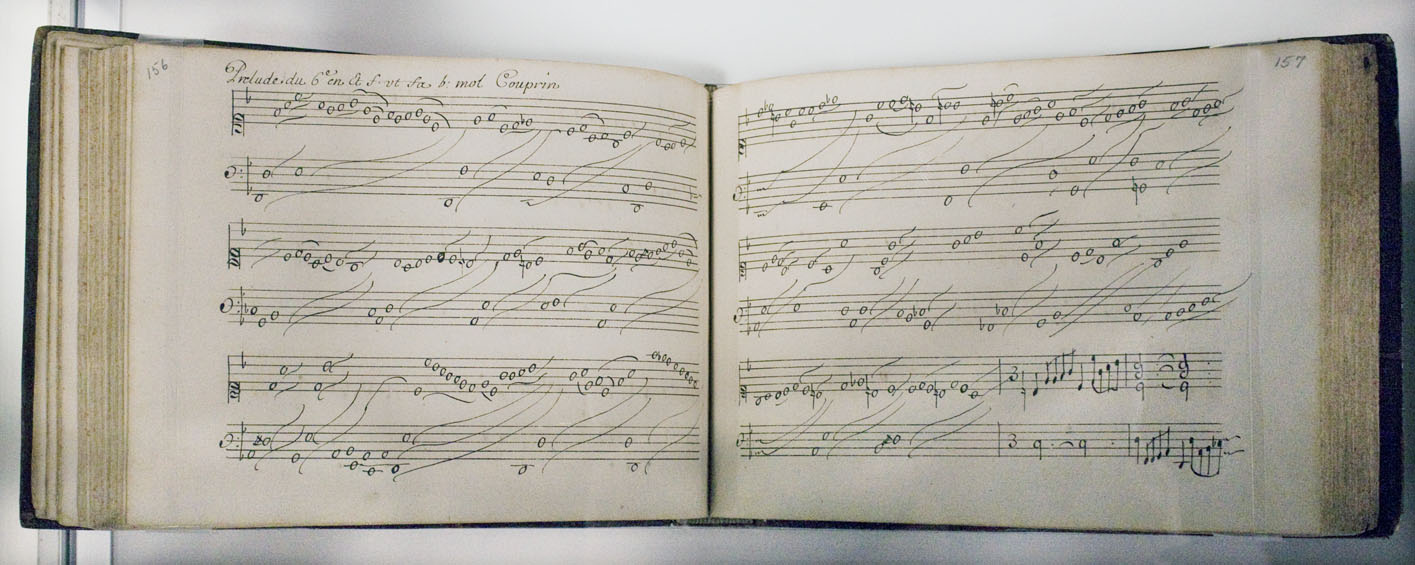 156
Prelude du 6e en C. f. ut fa b. mol Couprin
157
3
3